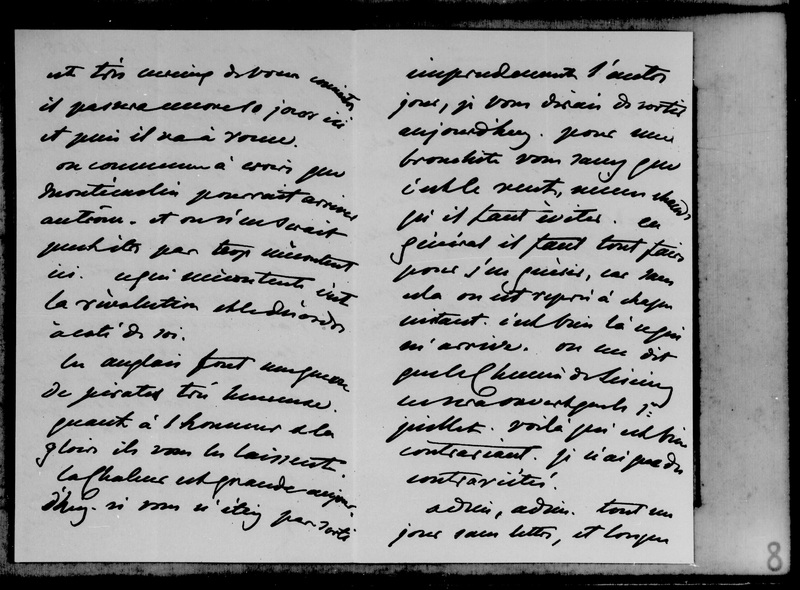 est très de vous
il passera encore 10 jours ici
et puis il va à rome.
on commence à croire que
montécuclin pourrait arriver
au trône. et on n'en serait
peut-être pas trop mécontent
ici. ce qui mécontente c'est
la révolution et le désordre
à coté de soi.
les anglais font une guerre
de pirates très heureuse.
quant à l'honneur et la
gloire ils vous les laissent.
la chaleur est grande aujour-
d'huy. si vous n'étiez pas sorti
imprudemment l'autre
jour, je vous dirais de sortir
aujourd'huy. pour une
bronchite vous savez que
c'est le vent, même chaud
qu'il faut éviter. en
général il faut tout faire
pour s'en guérir, car sans
cela on est repris à chaque
instant. c'est bien là ce qui
m'arrive. on me dit
que le chemin de Lisieux
ne sera ouvert que le 1er
juillet. voilà qui est bien
contrariant. je n'ai que des
contrariétés.
adieu, adieu. tout un
jour sans lettre, et longue
8